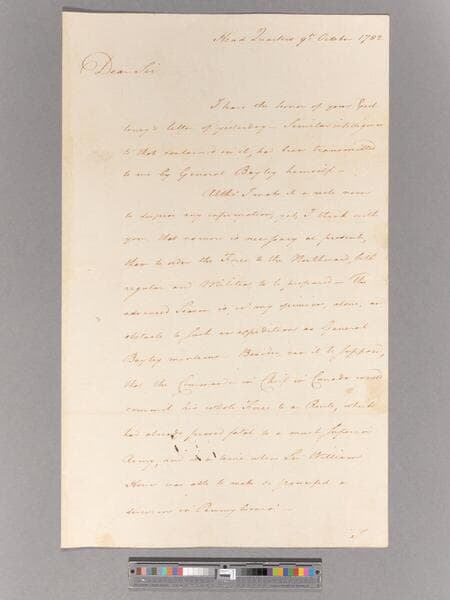 Head Quarters 9th October 1782
Dear Sir
I have the honor of your Excel
lency's letter of yesterday – Similar intelligence
to that contained in it, has been transmitted
to me by General Bayley himself –
Altho' I make it a rule never
to despise any information, yet, I think with
you, that no more is necessary at present,
than to order the Force to the Northward, both
regular and Militia, to be prepared – The
advanced Season is in my opinion, alone, an
obstacle to such an expedition as General
Bayley mentions – Besides, can it be supposed,
that the Commander in Chief in Canada would
commit his whole Force to a Route, which
had already proved fatal to a much superior
Army, and in a time when Sir William
Howe was able to make so powerful a
diversion in Pennsylvania? –